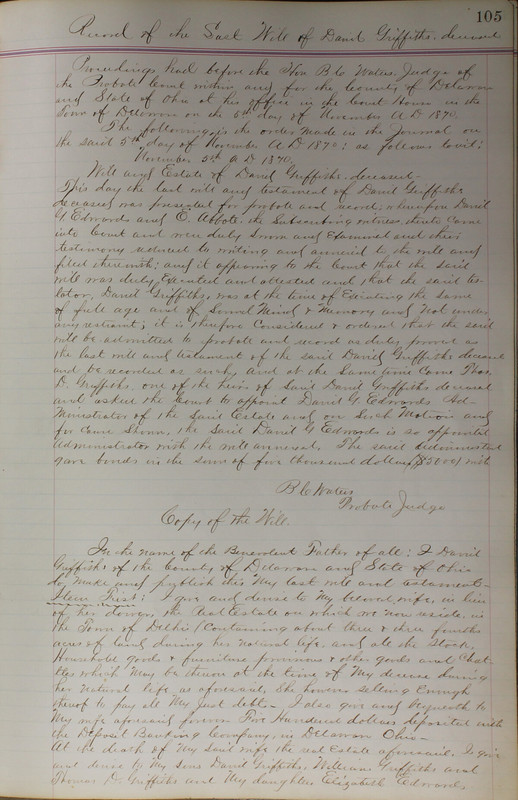 105
Record of the Last Will of David Griffiths, deceased
Proceedings had before the Hon B C Waters, Judge of
the Probate Court within and for the County of Delaware
and State of Ohio at his office in the Court House in the
Town of Delaware on the 5th day of November A D 1870.
The following is the order made in the Journal on
the said 5th day of November A D 1870: as follows towit:
November 5th A D 1870.
Will and Estate of David Griffiths, deceased-
This day the last will and testament of David Griffiths
deceased was presented for probate and record, whereupon David
G Edwards and C. Abbott. the Subscribing witness thereto came
into Court and were duly Sworn and Examined and their
testimony reduced to writing and annexed to the will and
filed therewith: and it appearing to the Court that the said
will was duly Executed and attested and that the said tes-
tator, David Griffiths, was at the time of Executing the same
of full age and of Sound Mind & Memory and Not under
any restraint; it is therefore Considered & ordered that the said
will be admitted to probate and record as duly proved as
the last will and testament of the said David Griffiths deceased
and be recorded as such, and at the Same time Came Thos.
D. Griffiths. one of the heirs of Said David Griffiths deceased
and asked the Court to appoint David G. Edwards Ad-
Ministrator of the Said Estate and on Such Motion and
for Cause Shown, the Said David G Edwards is so appointed
Administrator with the will annexed. The said Administrator
gave bonds in the sum of five thousand dollars ($5000) with
B C Waters
Probate Judge
Copy of the Will.
In the name of the Benevolent Father of all: I David
Griffiths of the County of Delaware and State of Ohio
do make and publish this My last will and testament-
Item First: I give and devise to My beloved wife, in lieu
of her dower, the Real Estate on which we now reside, in
the Town of Delhi (Containing about three & three fourths
acres of land) during her natural life, and all the Stock,
Household goods & furniture provisions & other goods and Chat-
tles which May be thereon at the time of My decease during
her natural life as aforesaid, She however selling Enough
thereof to pay all My just debts- I also give and bequeath to
My wife aforesaid forever Five Hundred dollars deposited with
the Deposit Banking Company, in Delaware Ohio-
At the death of My Said wife the real Estate aforesaid, I give
and devise to My Sons David Griffiths, William Griffiths and
Thomas D. Griffiths and My daughter Elizabeth Edwards-